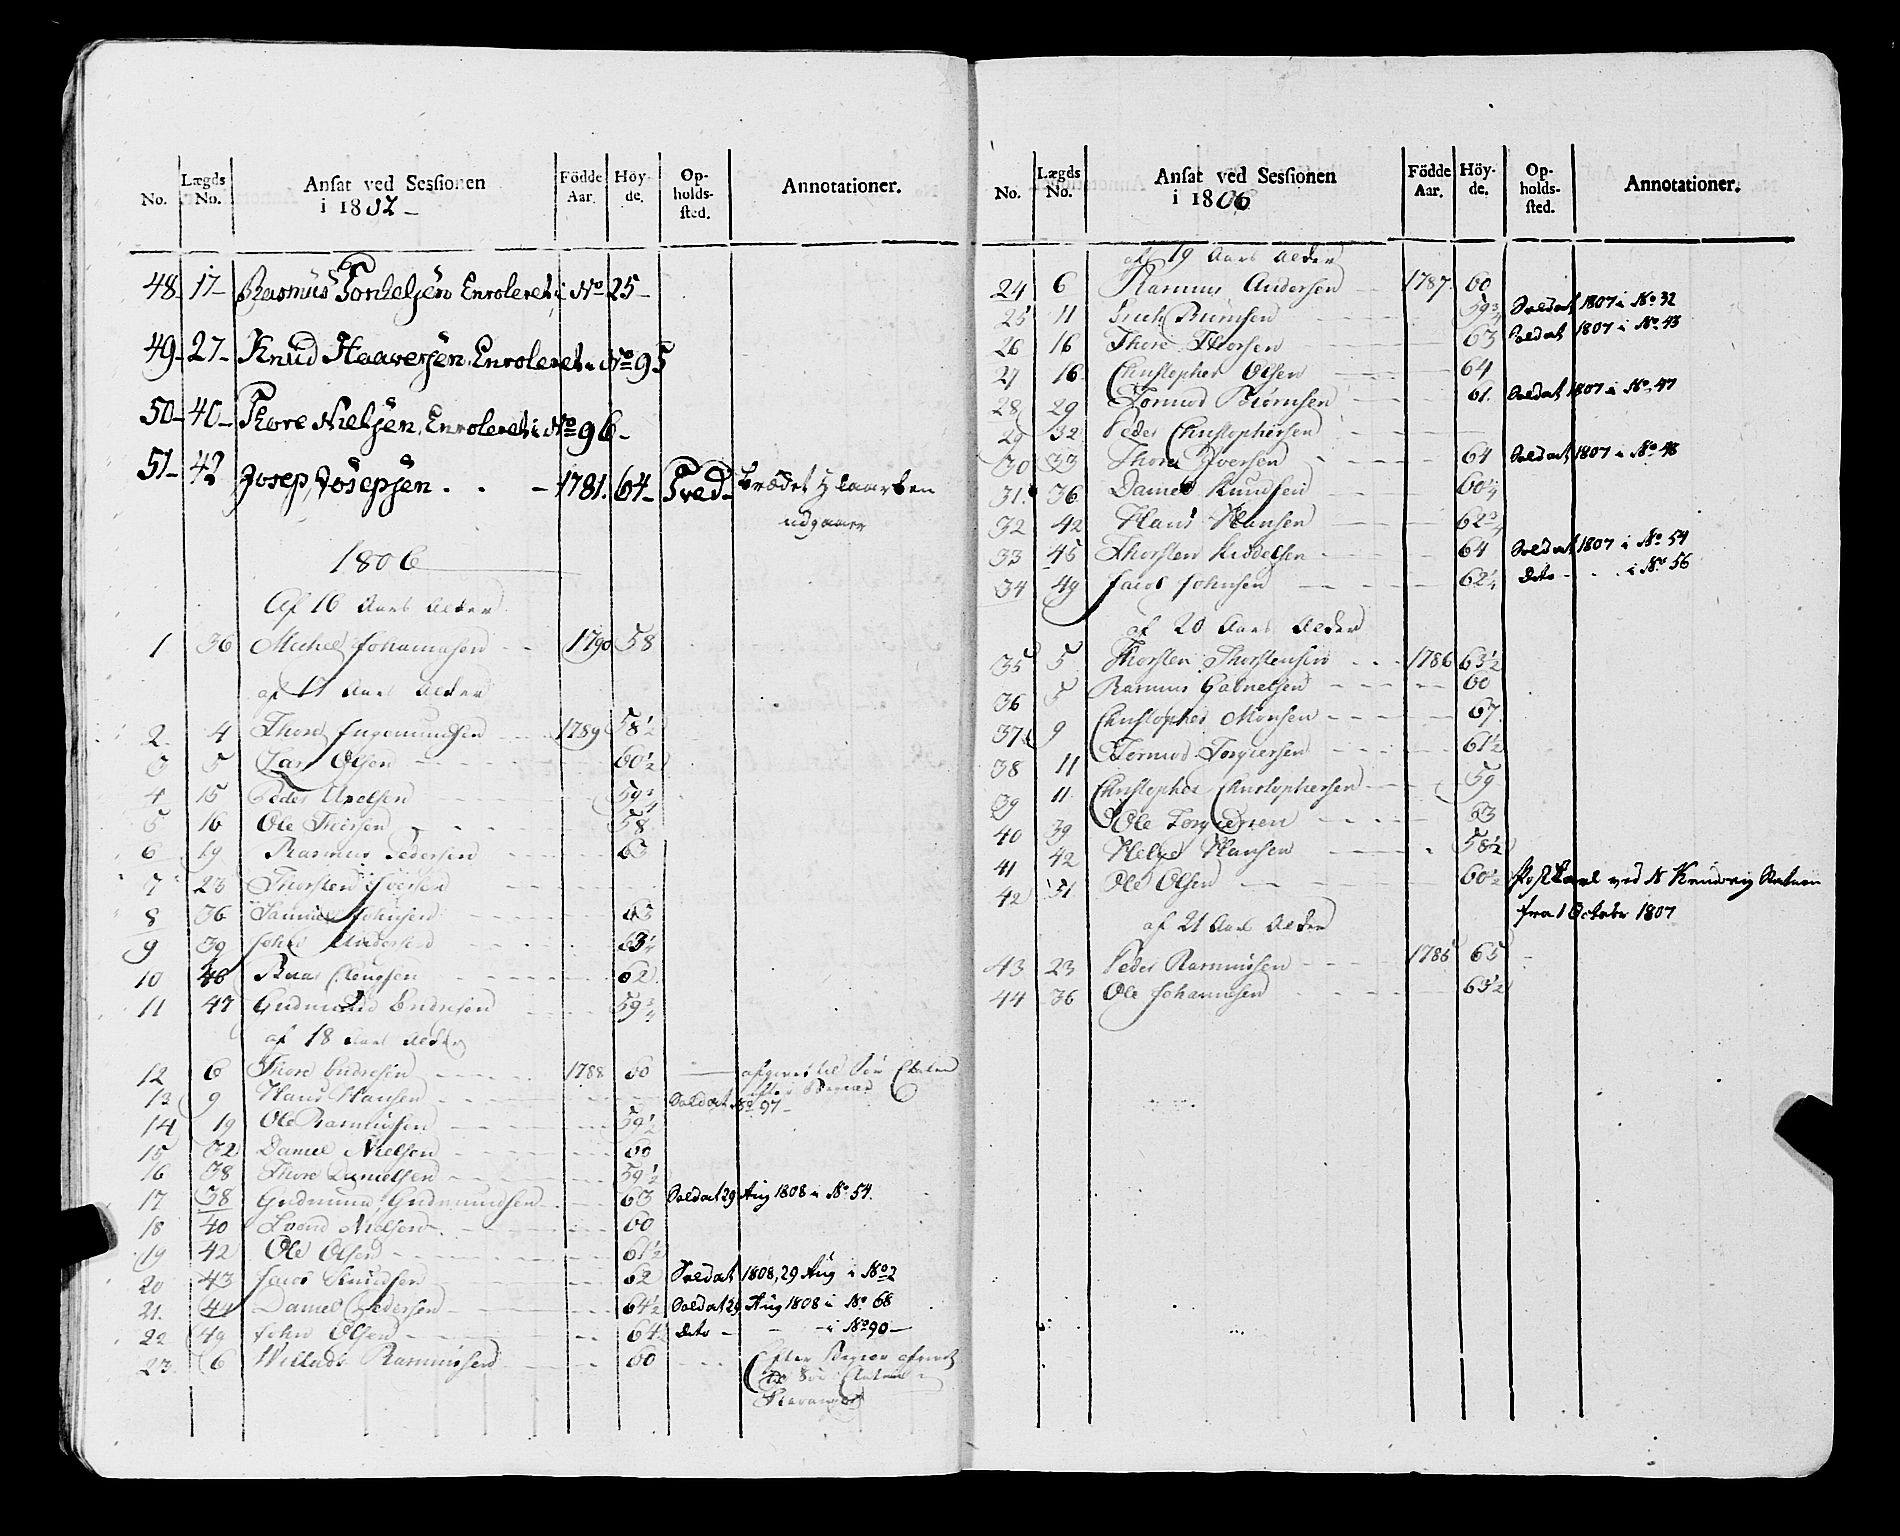 No. Lægds No. Ansat ved Sessionen i 1802 - Födde Aar. Höy-de. Op-holds-sted. Annotationer.
48 - 17 - Rasmus Torkelsen Enroleret i No 25 -
49 - 27 - Knud Haaversen Enroleret i No 95
50 - 40 - Thore Nielsen, Enroleret i No 96 -
51 - 42 Josep Josepsen . . - 1781. 64 - Tred -
udgaaer
1806
Af 16 Aars Alder
1 36 Michel Johannesen - - 1790 58
af 17 Aars Alder
2. 4 Thore Ingemundsen - - 1789 58½
3 5 Lars Olsen - - - 60½
4 15 Peder Axelsen 59¾
5 16 Ole Thorsen - - 58
6 19 Rasmus Pedersen - - 63
7 23 Thorsten Iversen - - -
8 36 Johnsen - - 63
9 39 John Andersen - - 63¼
10 46 - - 62
11 47 Gudmund Endresen - - 59¾
af 18 Aars Alder
12 6 Thore Endresen - - 1788 60
13 9 Hans Hansen - - Soldat No 97 -
14 19 Ole Rasmussen - - 59½
15 32 Daniel Nielsen - - 60
16 38 Thore Danielsen - - 59½
17 38 Gudmund Gudmundsen - - 63 Soldat 29 Aug 1808 i No 54.
18 40 Svend Nielsen - - 60
19 42 Ole Olsen - - 61½
20 43 Jacob Knudsen - - 62 Soldat 1808, 29 Aug i No 2
21. 44 Daniel Pedersen - - 64½ Soldat 29 Aug 1808 i No 68
22 49 John Olsen - - 64 Dito - - i No 90 -
23. 6 Willads Rasmussen - - 60 - - Efter Begiær
Stavanger
No. Lægds No. Ansat ved Sessionen i 1806 Födde Aar. Höy-de. Op-holds-sted. Annotationer.
af 19 Aars Alder
24 6 Rasmus Andersen - 1787. 60
25 11 59¾ Soldat 1807 i No 32
26 16 Thore Thorsen - - 63 Soldat 1807 i No 43
27 16 Christopher Olsen - - 64
28 29 Tormod Biörnsen - - 61. Soldat 1807 i No 47
29 32 Peder Christophersen - -
30 33 Thore Iversen - - 64 Soldat 1807 i No 48
31. 36 Daniel Knudsen - - 60¼
32 42 Hans Hansen - - 62¾
33 45 Thorsten Kiddelsen - - 64 Soldat 1807 i No 54
34 49 Jacob Johnsen - - 62¼ Dito - - i No 56
af 20 Aars Alder
35 5 Thorsten Thorstensen - - 1786 63½
36 5 Rasmus Gabrielsen - - 60
37 9 Christopher Monsen - - 67
38 11 Tormod Torgiersen - - 61½
39 11 Christopher Christophersen - - 59
40 39 Ole - - 63
41 42 Helge Hansen - - 58½
42 51 Ole Olsen - - 60½ Postkarl ved
fra 1 October 1807
af 21 Aars Alder
43 23 Peder Rasmussen - - 1785 65
44 36 Ole Johannesen - - 63½